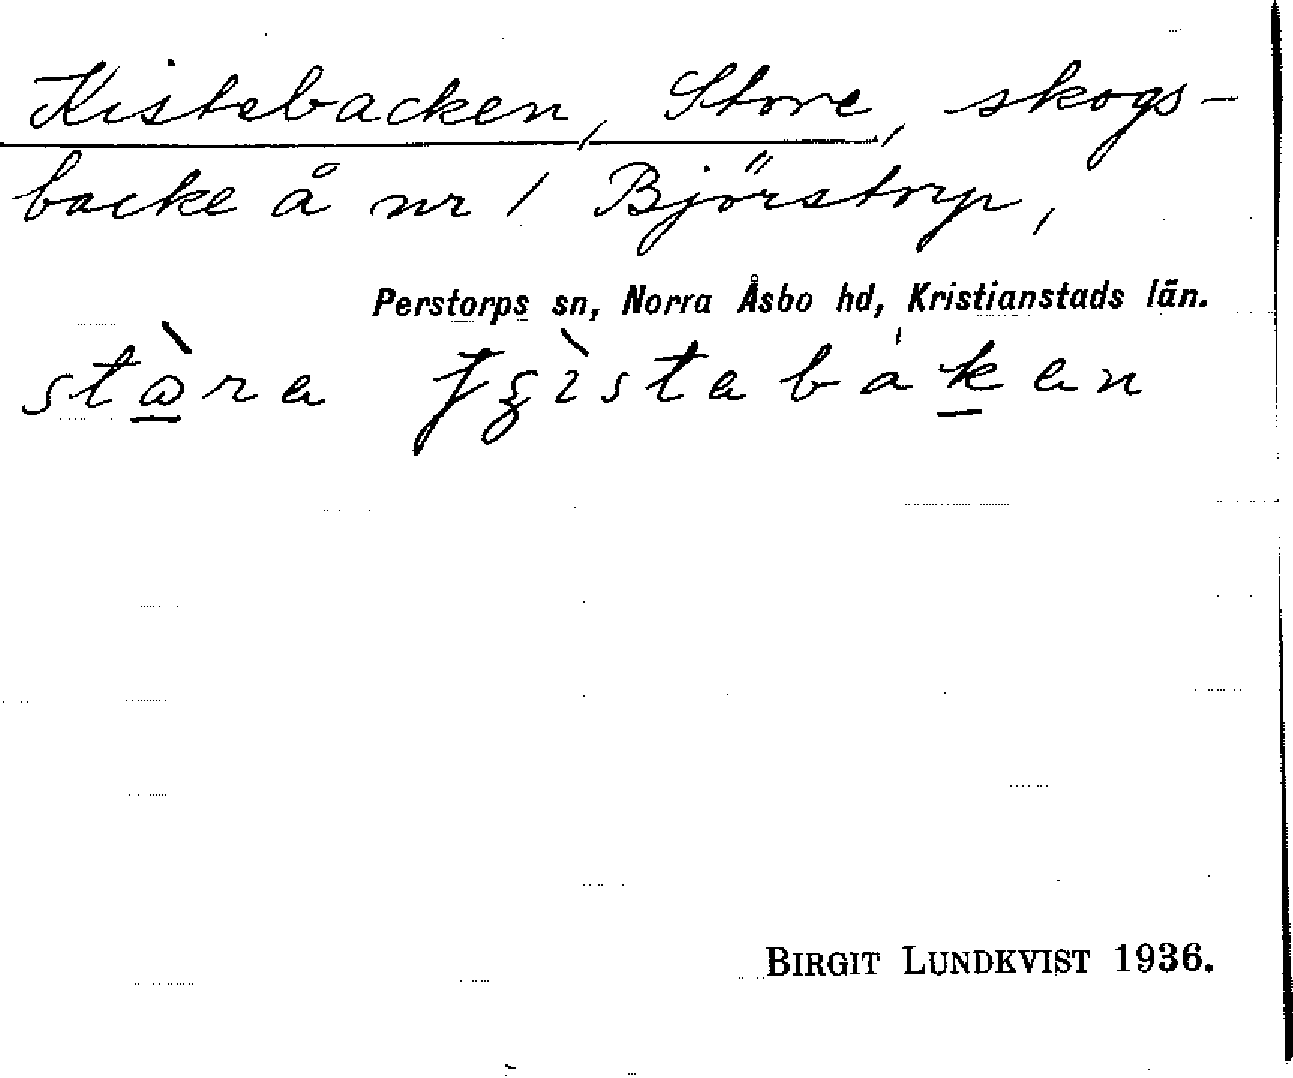 Kistebacken, Store, skogs-
backe å nr 1 Björstorp,
Perstorps sn, Norra Åsbo hd, Kristianstads län.
BIRGIT LUNDKVIST 1936.